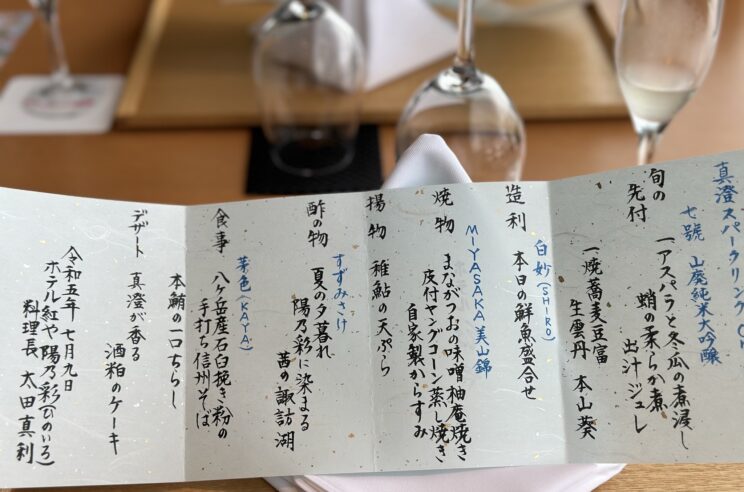 真澄 スパークリング
七號 山廃純米大吟醸
旬の
先付
一アスパラと冬瓜の煮浸し
蛸の柔らか煮
出汁ジュレ
一焼蕎麦豆富
生雲丹 本山葵
白妙(SHIRO)
造利 本日の鮮魚盛合せ
MIYASAKA 美山錦
焼物 まながつおの味噌柚庵焼き
皮付ヤングコーン蒸し焼き
自家製からすみ
揚物 稚鮎の天ぷら
すずみさけ
酢の物 夏の夕暮れ
陽乃彩に染まる
茜の諏訪湖
茅色(KAYA)
食事 八ヶ岳産石臼挽き粉の
手打ち信州そば
本鮪の一口ちらし
デザート 真澄が香る
酒粕のケーキ
令和五年 七月九日
ホテル紅や 陽乃彩(ひのいろ)
料理長 太田真利